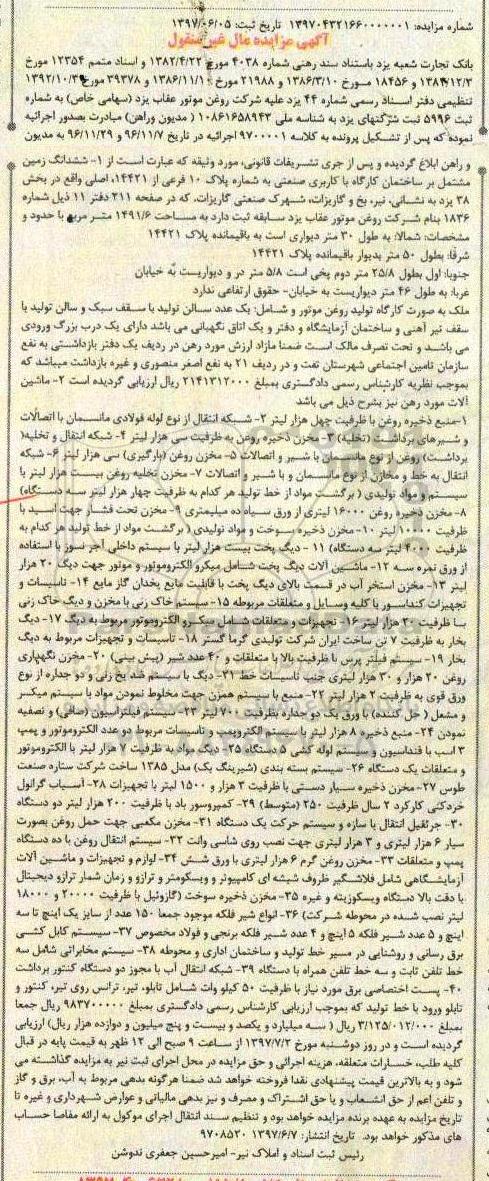 شماره مزایده: ۱۳۹۷۰۴۳۲۱۶۶۰۰۰۰۰۰۱ تاریخ ثبت: ۱۳۹۷/۰۶/۰۵
آگهی مزایده مال غیر منقول
بانک تجارت شعبه یزد باستناد سند رهنی شماره ۴۰۳۸ مورخ ۱۳۸۲/۴/۲۲ و اسناد متمم ۱۲۳۵۴ مورخ
۱۳۸۴/۱۲/۳ و ۱۸۴۵۶ مورخ ۱۳۸۶/۳/۱۰ و ۲۱۹۸۸ مورخ ۱۳۸۶/۱۱/۱۰ و ۳۹۳۷۸ مورخ ۱۳۹۲/۱۰/۳۰
تنظیمی دفتر اسناد رسمی شماره ۴۴ یزد علیه شرکت روغن موتور عقاب یزد (سهامی خاص) به شماره
ثبت ۵۹۹۶ ثبت شرکتهای یزد به شناسه ملی ۱۰۸۶۱۶۵۸۹۴۳ ( مدیون وراهن) مبادرت بصدور اجرائیه
نموده که پس از تشکیل پرونده به کلاسه ۹۷۰۰۰۰۱ اجرائیه در تاریخ ۹۶/۱۱/۷ و ۹۶/۱۱/۲۹ به مدیون
و راهن ابلاغ گردیده و پس از جری تشریفات قانونی، مورد وثیقه که عبارت است از ۱- ششدانگ زمین
مشتمل بر ساختمان کارگاه با کاربری صنعتی به شماره پلاک ۱۰ فرعی از ۱۴۴۲۱، اصلی واقع در بخش
۳۸ یزد به نشانی، نیر، بخ و گاریزات، شهرک صنعتی گاریزات، که در صفحه ۲۱۱ دفتر ۱۱ ذیل شماره
۱۸۳۶ بنام شرکت روغن موتور عقاب یزد سابقه ثبت دارد به مساحت ۱۴۹۱/۶ متر مربع با حدود و
مشخصات: شمالا: به طول ۳۰ متر دیواری است به باقیمانده پلاک ۱۴۴۲۱
شرقا: بطول ۵۰ متر بدیوار باقیمانده پلاک ۱۴۴۲۱
جنوبا: اول بطول ۲۵/۸ متر دوم پخی است ۵/۸ متر در و دیواریست به خیابان
غربا: به طول ۴۶ متر دیواریست به خیابان- حقوق ارتفاعی ندارد
ملک به صورت کارگاه تولید روغن موتور و شامل: یک عدد سالن تولید با سقف سبک و سالن تولید با
سقف تیر آهنی و ساختمان آزمایشگاه و دفتر و یک اتاق نگهبانی می باشد دارای یک درب بزرگ ورودی
می باشد و تحت تصرف مالک است ضمنا مازاد ارزش مورد رهن در ردیف یک دفتر بازداشتی به نفع
سازمان تامین اجتماعی شهرستان تفت و در ردیف ۲۱ به نفع اصغر منصوری و غیره بازداشت میباشد که
بموجب نظریه کارشناس رسمی دادگستری بمبلغ ۲۱۴۱۳۱۲۰۰۰ ریال ارزیابی گردیده است ۲- ماشین
آلات مورد رهن نیز بشرح ذیل می باشد
۱-منبع ذخیره روغن با ظرفیت چهل هزار لیتر ۲- شبکه انتقال از نوع لوله فولادی مانسمان با اتصالات
و شیرهای برداشت (تخلیه) ۳- مخزن ذخیره روغن به ظرفیت سی هزار لیتر ۴- شبکه انتقال و تخلیه(
برداشت) روغن از نوع مانسمان با شیر و اتصالات ۵- مخزن روغن (بارگیری) سی هزار لیتر ۶- شبکه
انتقال به خط و مخازن از نوع مانسمان و با شیر و اتصالات ۷- مخزن تخلیه روغن بیست هزار لیتر با
سیستم و مواد تولیدی ( برگشت مواد از خط تولید هر کدام به ظرفیت چهار هزار لیتر سه دستگاه)
۸- مخزن ذخیره روغن ۱۶۰۰۰ لیتری از ورق سیاه ده میلیمتری ۹- مخزن تحت فشار جهت اسید با
ظرفیت ۱۰۰۰۰ لیتر ۱۰- مخزن ذخیره سوخت و مواد تولیدی ( برگشت مواد از خط تولید هر کدام به
ظرفیت ۴۰۰۰ لیتر سه دستگاه) ۱۱ - دیگ پخت بیست هزار لیتر با سیستم داخلی آجر نسوز با استفاده
از ورق نمره سه ۱۲- ماشین آلات دیگ پخت شامل میکرو الکتروموتور و موتور جهت دیگ ۲۰ هزار
لیتر ۱۳- مخزن استخر آب در قسمت بالای دیگ پخت با قابلیت مایع یخدان گاز مایع ۱۴- تاسیسات و
تجهیزات کندانسور با کلیه وسایل و متعلقات مربوطه ۱۵- سیستم خاک زنی با مخزن و دیگ خاک زنی
با ظرفیت ۲۰ هزار لیتر ۱۶- تجهیزات و متعلقات شامل میکسر و الکتروموتور مربوط به دیگ ۱۷- دیگ
بخار به ظرفیت ۷ تن ساخت ایران شرکت تولیدی گرما گستر ۱۸- تاسیسات و تجهیزات مربوط به دیگ
بخار ۱۹- سیستم فیلتر پرس با ظرفیت بالا با متعلقات و ۴۰ عدد شیر (پیش بینی) ۲۰- مخزن نگهداری
روغن ۲۰ هزار و ۳۰ هزار لیتری جنب تاسیسات خط ۲۱- دیگ با سیستم ضد یخ زنی و دو جداره از نوع
ورق قوی به ظرفیت ۲ هزار لیتر ۲۲- منبع با سیستم همزن جهت مخلوط نمودن مواد با سیستم میکسر
و مشعل ( حل کننده) با ورق یک و دو جداره بظرفیت ۷۰۰ لیتر ۲۳- سیستم فیلتراسیون (صافی) و تصفیه
نمودن ۲۴- منبع ذخیره ۸ هزار لیتر با سیستم الکتروپمپ و تاسیسات مربوط دو عدد الکتروموتور و پمپ
۳ اسب با فنداسیون و سیستم لوله کشی ۵ دستگاه ۲۵- دیگ مواد به ظرفیت ۷ هزار لیتر با الکتروموتور
و متعلقات یک دستگاه ۲۶- سیستم بسته بندی (شیرینگ پک) مدل ۱۳۸۵ ساخت شرکت ستاره صنعت
طوس ۲۷- مخزن ذخیره سیار دستی با ظرفیت ۳ هزار و ۱۵۰۰ لیتر با تجهیزات ۲۸- آسیاب گرانول
خردکنی کارکرد ۲ سال ظرفیت ۲۵۰ (متوسط) ۲۹- کمپروسور باد با ظرفیت ۲۰۰ هزار لیتر دو دستگاه
۳۰- جرثقیل انتقال با سازه و سیستم حرکت یک دستگاه ۳۱- مخزن مکعبی جهت حمل روغن بصورت
سیار ۶ هزار لیتری و ۳ هزار لیتری جهت نصب روی شاسی وانت ۳۲- سیستم انتقال روغن با ده دستگاه
پمپ و متعلقات ۳۳- مخزن روغن گرم ۶ هزار لیتری با ورق شش ۳۴- لوازم و تجهیزات و ماشین آلات
آزمایشگاهی شامل فلاشگیر ظروف شیشه ای کامپیوتر و ویسکومتر و ترازو و زمان شمار ترازو دیجیتال
با دقت بالا دستگاه ویسکوزیته و غیره ۳۵- مخزن ذخیره سوخت (گازوئیل با ظرفیت ۲۰۰۰۰ و ۱۸۰۰۰
لیتر نصب شده در محوطه شرکت) ۳۶- انواع شیر فلکه موجود جمعا ۱۵۰ عدد از سایز یک اینچ تا سه
اینچ و ۵ عدد شیر فلکه ۵ اینچ و ۴ عدد شیر فلکه برنجی و فولاد مخصوص ۳۷- سیستم کابل کشی
برق رسانی و روشنایی در مسیر خط تولید و ساختمان اداری و محوطه ۳۸- سیستم مخابراتی شامل سه
خط تلفن ثابت و سه خط تلفن همراه با دستگاه ۳۹- شبکه انتقال آب با مجوز دو دستگاه کنتور برداشت
۴۰- پست اختصاصی برق مورد نیاز با ظرفیت ۵۰ کیلو وات شامل تابلو، تیر، ترانس روی تیر، کنتور و
تابلو ورود با خط تولید که بموجب ارزیابی کارشناس رسمی دادگستری بمبلغ ۹۸۳۷۰۰۰۰۰ ریال جمعا
بمبلغ ۳/۱۲۵/۰۱۲/۰۰۰ ریال ( سه میلیارد و یکصد و بیست و پنج میلیون و دوازده هزار ریال) ارزیابی
گردیده است و در روز دوشنبه مورخ ۱۳۹۷/۷/۲ از ساعت ۹ صبح الی ۱۲ ظهر به قیمت پایه در قبال
کلیه طلب، خسارات متعلقه، هزینه اجرائی و حق مزایده در محل اجرای ثبت نیر به مزایده گذاشته می
شود و به بالاترین قیمت پیشنهادی نقدا فروخته خواهد شد ضمنا هرگونه بدهی مربوط به آب، برق و گاز
و تلفن اعم از حق انشعاب و یا حق اشتراک و مصرف و نیز بدهی مالیاتی و عوارض شهرداری و غیره تا
تاریخ مزایده به عهده برنده مزایده خواهد بود و تنظیم سند انتقال اجرای موکول به ارائه مفاصا حساب
های مذکور خواهد بود. تاریخ انتشار: ۱۳۹۷/۶/۷ ۹۷۰۸۵۲۰
رئیس ثبت اسناد و املاک نیر- امیرحسین جعفری ندوشن